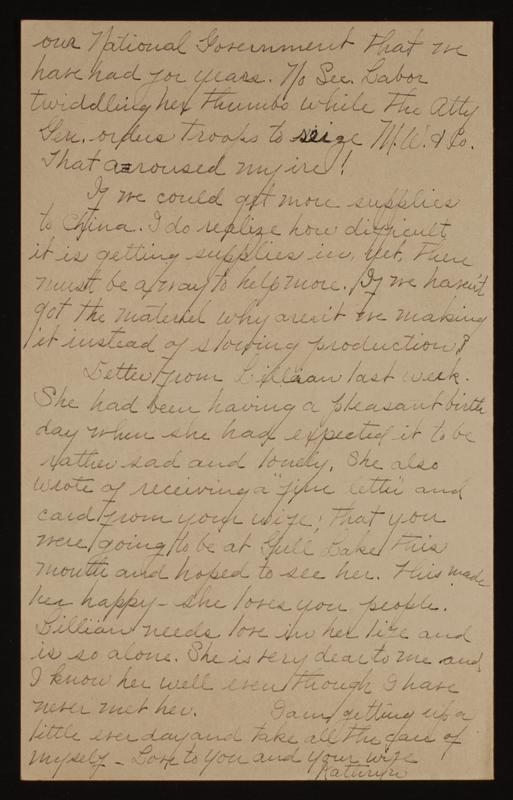 our National Government that we
have had for years. No Sec. Labor
twiddling her thumbs while the Atty
Gen. orders troops to seize M. W. & Co.
That aroused my ire!
If we could get more supplies
to China. I do realize how difficult
it is getting supplies in, yet, there
must be a way to help more. If we haven't
got the material why aren't we making
it instead of slowing production?
Letter from Lillian last week.
She had been having a pleasant birth
day when she had expected it to be
rather sad and lonely. She also
wrote of receiving a "fine letter" and
card from your wife; that you
were going to be at Gull Lake this
month and hoped to see her. This made
her happy - she loves you people.
Lillian needs love in her life and
is so alone. She is very dear to me and
I know her well even though I have
never met her. I am getting up a
little ever day and take all the care of
myself - Love to you and your wife
Kathryn